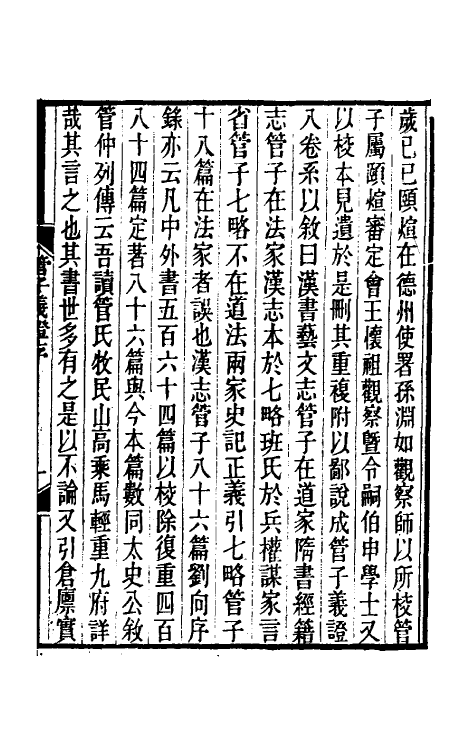 歲己巳頤煊在德州使署孫淵如觀察師以所校管
子屬頤煊審定會王懷祖觀察曁令嗣伯申學士又
以校本見遺於是刪其重複附以鄙說成管子義證
八卷系以敘曰漢書藝文志管子在道家隋書經籍
志管子在法家漢志本於七略班氏於兵權謀家言
省管子七略不在道法兩家史記正義引七略管子
十八篇在法家者誤也漢志管子八十六篇劉向序
錄亦云凡中外書五百六十四篇以校除復重四百
八十四篇定著八十六篇與今本篇數同太史公敘
管仲列傳云吾讀管氏牧民山高乘馬輕重九府詳
哉其言之也其書世多有之是以不論又引倉廩實
管子義證序
一